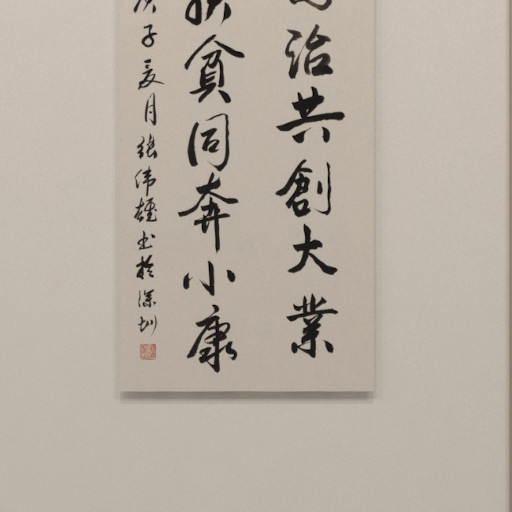 治共創大業
扶貧同奔小康
庚子夏月張偉雄書於深圳